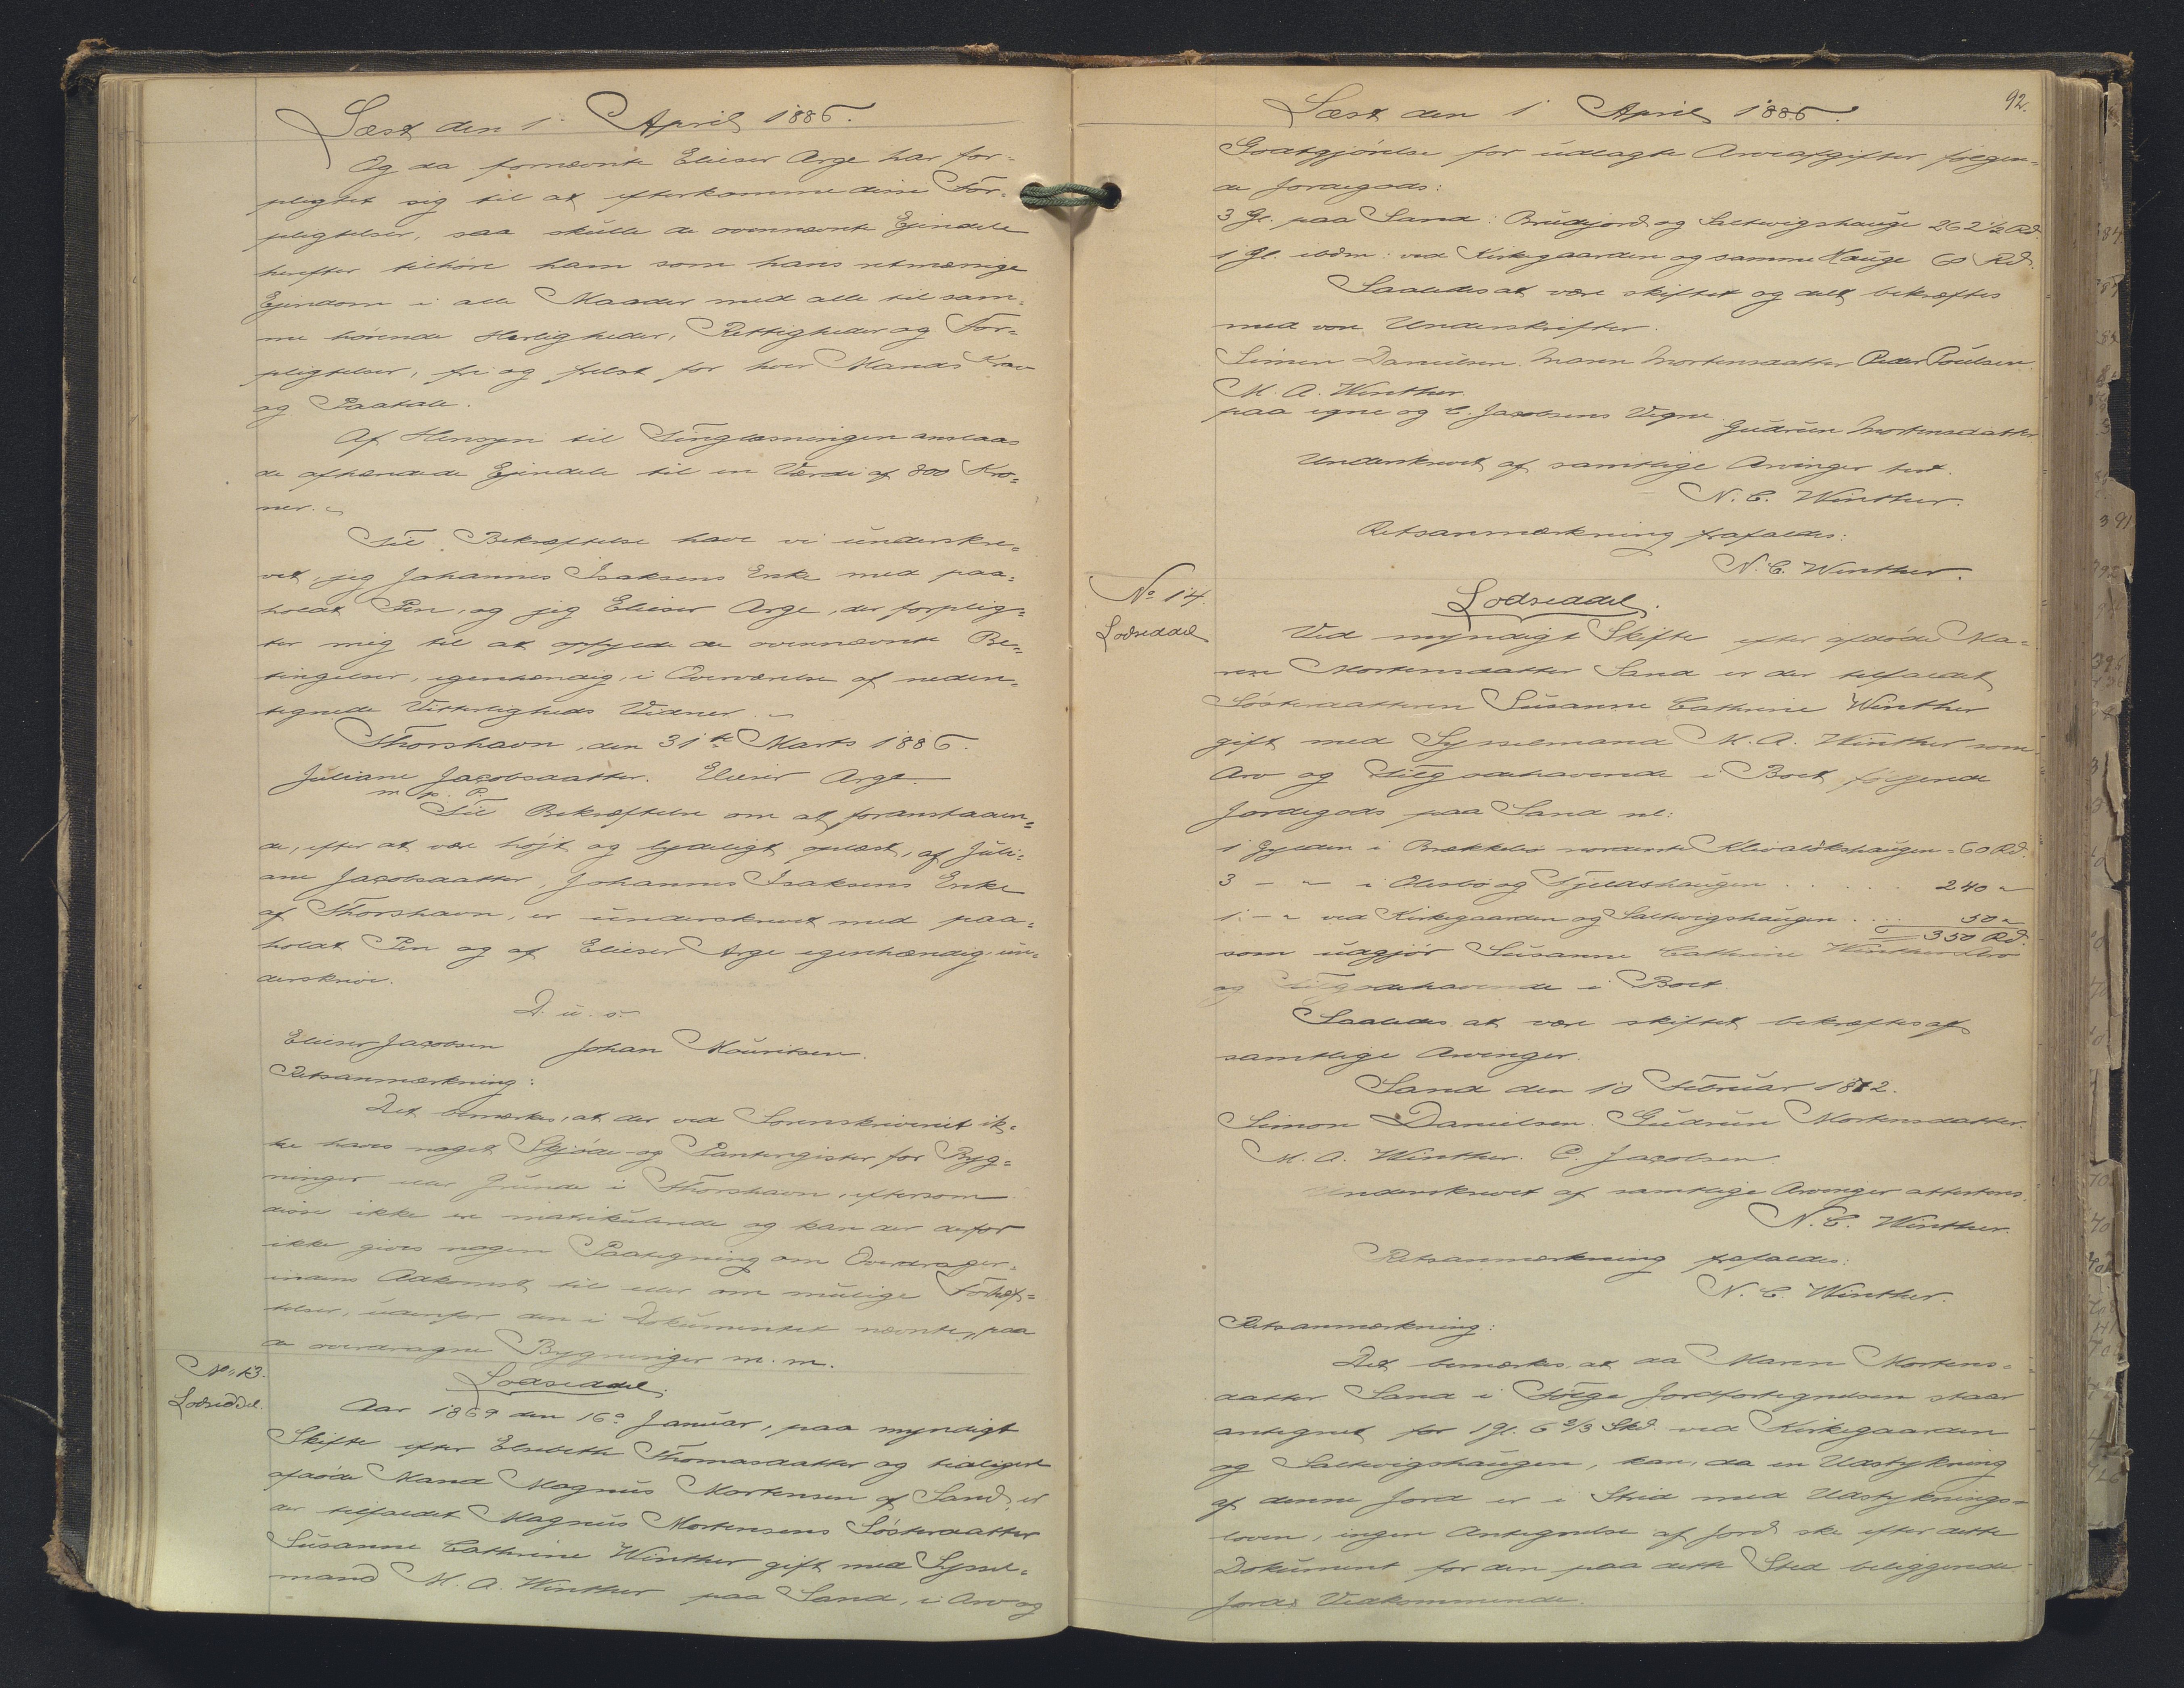 Læst den 1 April 1886.
Og da fornævnte Elieser Arge har for-
pligtet sig til at efterkomme disse For-
pligtelser, saa skulle de ovennævnte Ejendele
herefter tilhøre ham som hans retmæssige
Ejendom i alle Maader med alle til sam-
me hørende Herligheder, Rettigheder og For-
pligtelser, fri og frelst for hver Mands Krav
og Paatale.
Af Hensyn til Tinglæsningen anslaas
de afhændede Ejendele til en Værdi af 800 Kro-
ner.
Til Bekræftelse have vi underskre-
vet, jeg Johannes Isaksens Enke med paa-
holdt Pen, og jeg Elieser Arge, der forplig-
ter mig til at opfylde de ovennævnte Be-
tingelser, egenhændig, i Overværelse af neden-
tegnede Vitterligheds Vidner.
Thorshavn, den 31te Marts 1886.
Juliane Jacobsdatter. Elieser Arge.
m. p. P.
Til Bekræftelse om at foranstaaen-
de, efter at være højt og lydeligt oplæst, af Juli-
ane Jacobsdatter, Johannes Isaksens Enke
af Thorshavn, er underskrevet med paa-
holdt Pen og af Elieser Arge egenhændig un-
derskreve.
D. u. s.
Elieser Jacobsen Johan Mouritsen.
Retsanmærkning:
Det bemærkes, at der ved Sorenskriveriet ik-
ke haves noget Skjøde- og Panteregister for Byg-
ninger eller Grunde i Thorshavn, eftersom
disse ikke ere matrikulerede og kan der derfor
ikke gives nogen Paategning om Overdrager-
indens Adkomst til eller om mulige Behæf-
telser, udenfor den i Dokumentet nævnte, paa
de overdragne Bygninger m. m.
No 13.
Lodseddel.
Lodseddel.
Aar 1869 den 16de Januar, paa myndigt
Skifte efter Elsebeth Thomasdatter og tidligere
afdøde Mand Magnus Mortensen af Sand, er
der tilfaldet Magnus Mortensens Søsterdatter
Susanne Cathrine Winther gift med Syssel-
mand M. A. Winther paa Sand, i Arv og
92.
Læst den 1 April 1886.
Godtgjörelse for udlagte Arveafgifter følgen-
de Jordegods:
3 Gl. paa Sand: Brudejord og Saltvigshauge 262 1/2 Rd.
1 Gl. ibdm: ved Kirkegaarden og samme Hauge 60 Rd.
Saaledes at være skiftet og delt bekræftes
med vore Underskrifter.
Simon Danielsen. Maren Mortensdatter Peder Poulsen.
M. A. Winther
paa egne og C. Jacobsens Vegne. Gudrun Mortensdatter
Underskrevet af samtlige Arvinger
N. C. Winther.
Retsanmærkning frafaldes:
N. C. Winther.
No 14.
Lodseddel
Lodseddel.
Ved myndigt Skifte efter afdøde Ma-
ren Mortensdatter Sand er der tilfaldet
Søsterdatteren Susanne Cathrine Winther
gift med Sysselmand M. A. Winther som
Arv og Tilgodehavende i Boet følgende
Jordegods paa Sand nl:
1 Gylden i Brekkelio norderste Kleivalökshaugen = 60 Rd.
3 - " - i Olesbö og Tjeldshaugen . . . . . 240 "
1 - " ved Kirkegaarden og Saltvigshaugen . . . . 50 "
350 Rd.
som udgjør Susanne Cathrine Winthers Arv
og Tilgodehavende i Boet.
Saaledes at være skiftet bekræftes af
samtlige Arvinger.
Sand den 10 Februar 1872.
Simon Danielsen. Gudrun Mortensdatter.
M. A. Winther. C. Jacobsen
Underskrevet af samtlige Arvinger attesteres.
N. C. Winther.
Retsanmærkning frafaldes:
N. C. Winther.
Retsanmærkning:
Det bemærkes, at da Maren Mortens-
datter Sand i Følge Jordfortegnelsen staar
antegnet for 1 Gl. 6 2/3 Skd. ved Kirkegaarden
og Saltvigshaugen, kan, da en Udstykning
af denne Jord er i Strid med Udstyknings-
loven, ingen Antegnelse af Jord ske efter dette
Dokument for den paa dette Sted beliggende
Jords Vedkommende.